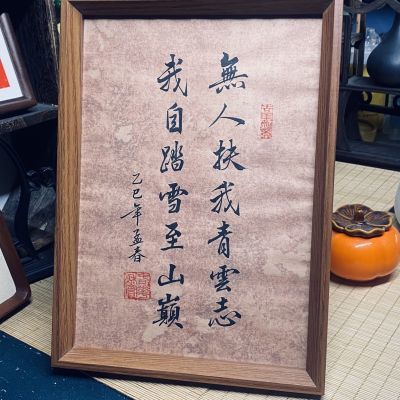 無人扶我青雲志
我自踏雪至山巔
乙巳年孟春